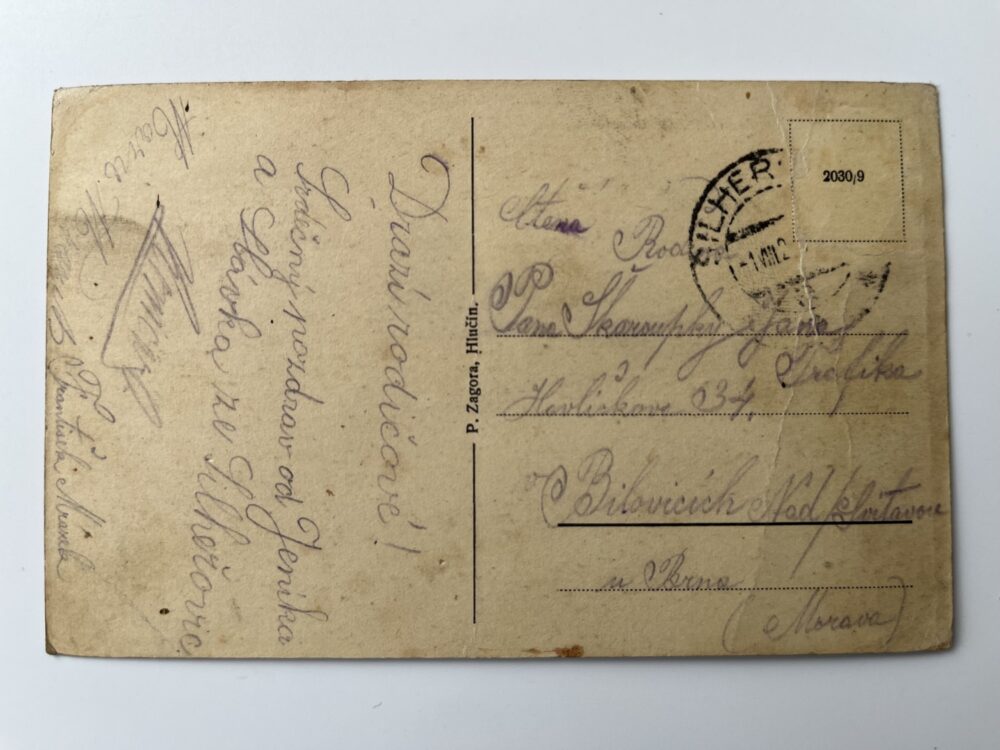 Drazí rodičové!
Srdečný pozdrav od Jeníka
a Slávka ze Šilheřovic.
František
P. Zagora, Hlučín.
2030/9
ŠILHEŘ
1.VIII.2
Ctěná
Rodina
Pana Škaroupky Jana
Trafika
Havlíčkova 34,
v Bilovicích Nad/Svitavou
u Brna
(Morava)